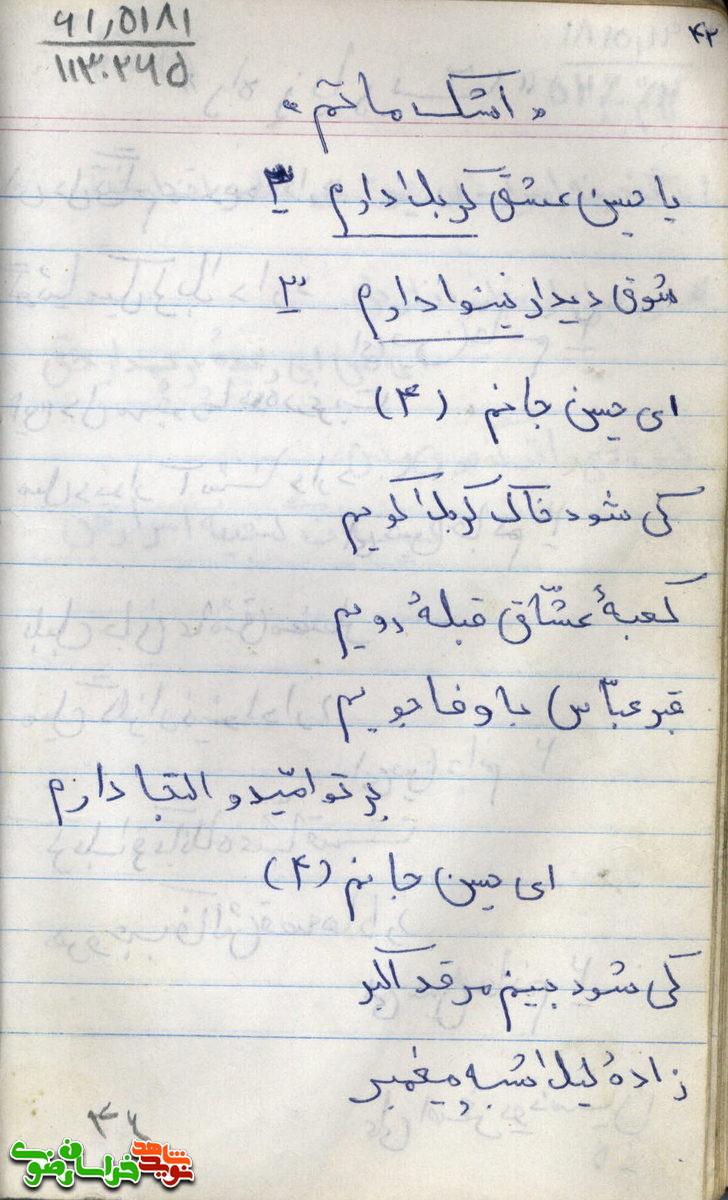 ۴۲
۹۱,۵۱۸۱
۱۱۳۰۲۶۵
«اشک ماتم»
یا حسین عشق کربلا دارم ۳
شوق دیدار نینوا دارم ۳
ای حسین جانم (۴)
کی شود خاک کربلا گویم
کعبهٔ عشّاق قبلهٔ رویم
قبر عبّاس با وفا جویم
بر تو امّید و التجا دارم
ای حسین جانم (۴)
کی شود بینم مرقد اکبر
زادهٔ لیلا شبه پیغمبر
۴۶
نوید شاهد خراسان رضوی